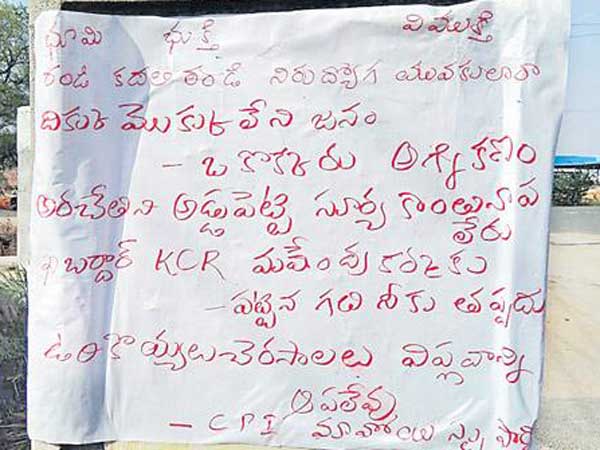 భూమి భుక్తి విముక్తి
రండి కదలి రండి నిరుద్యోగ యువకులారా
దిక్కు మొక్కు లేని జనం
- ఒకొక్కరు అగ్నికణం
అరచేతిని అడ్డుపెట్టి సూర్య కాంతినాప
లేరు
ఖబర్దార్ KCR మహేంద్ర కర్మకు
- పట్టిన గతి నీకు తప్పదు
ఉరికొయ్యలు చెరసాలలు విప్లవాన్ని
ఆపలేవు
- CPI మావోయిస్టు పార్టీ